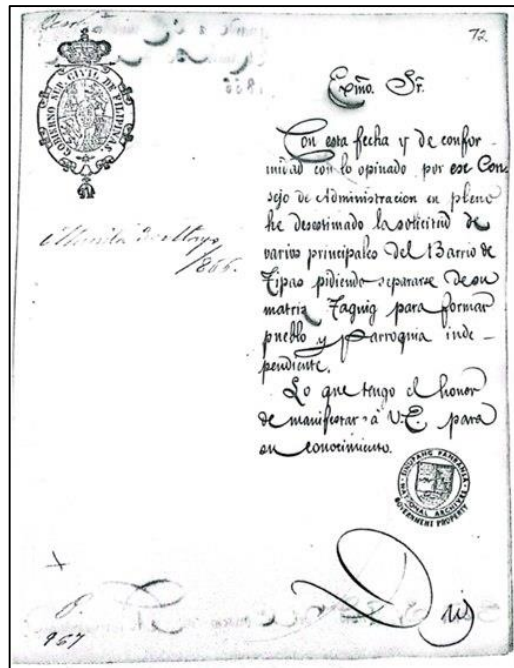 72
GOBIERNO SUP. CIVIL DE FILIPINAS
Exmo. Sr.
Con esta fecha y de confor-
midad con lo opinado por ese Con
sejo de Administracion en pleno
he desestimado la solicitud de
varios principales del Barrio de
Tipas pidiendo separarse de su
matriz Taguig para formar
pueblo y Parroquia inde-
pendiente.
Lo que tengo el honor
de manifestar á V.E. para
su conocimiento.
Manila Mayo
1866.
SINUPANG PAMBANSA
NATIONAL ARCHIVES
GOVERNMENT PROPERTY
P.
957